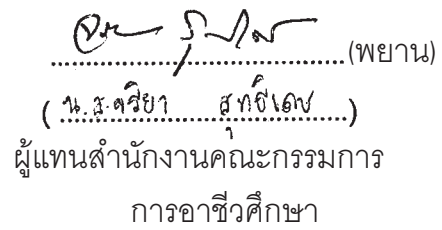 (พยาน)
(น.ส.จริยา สุทธิเดช)
ผู้แทนสำนักงานคณะกรรมการ
การอาชีวศึกษา